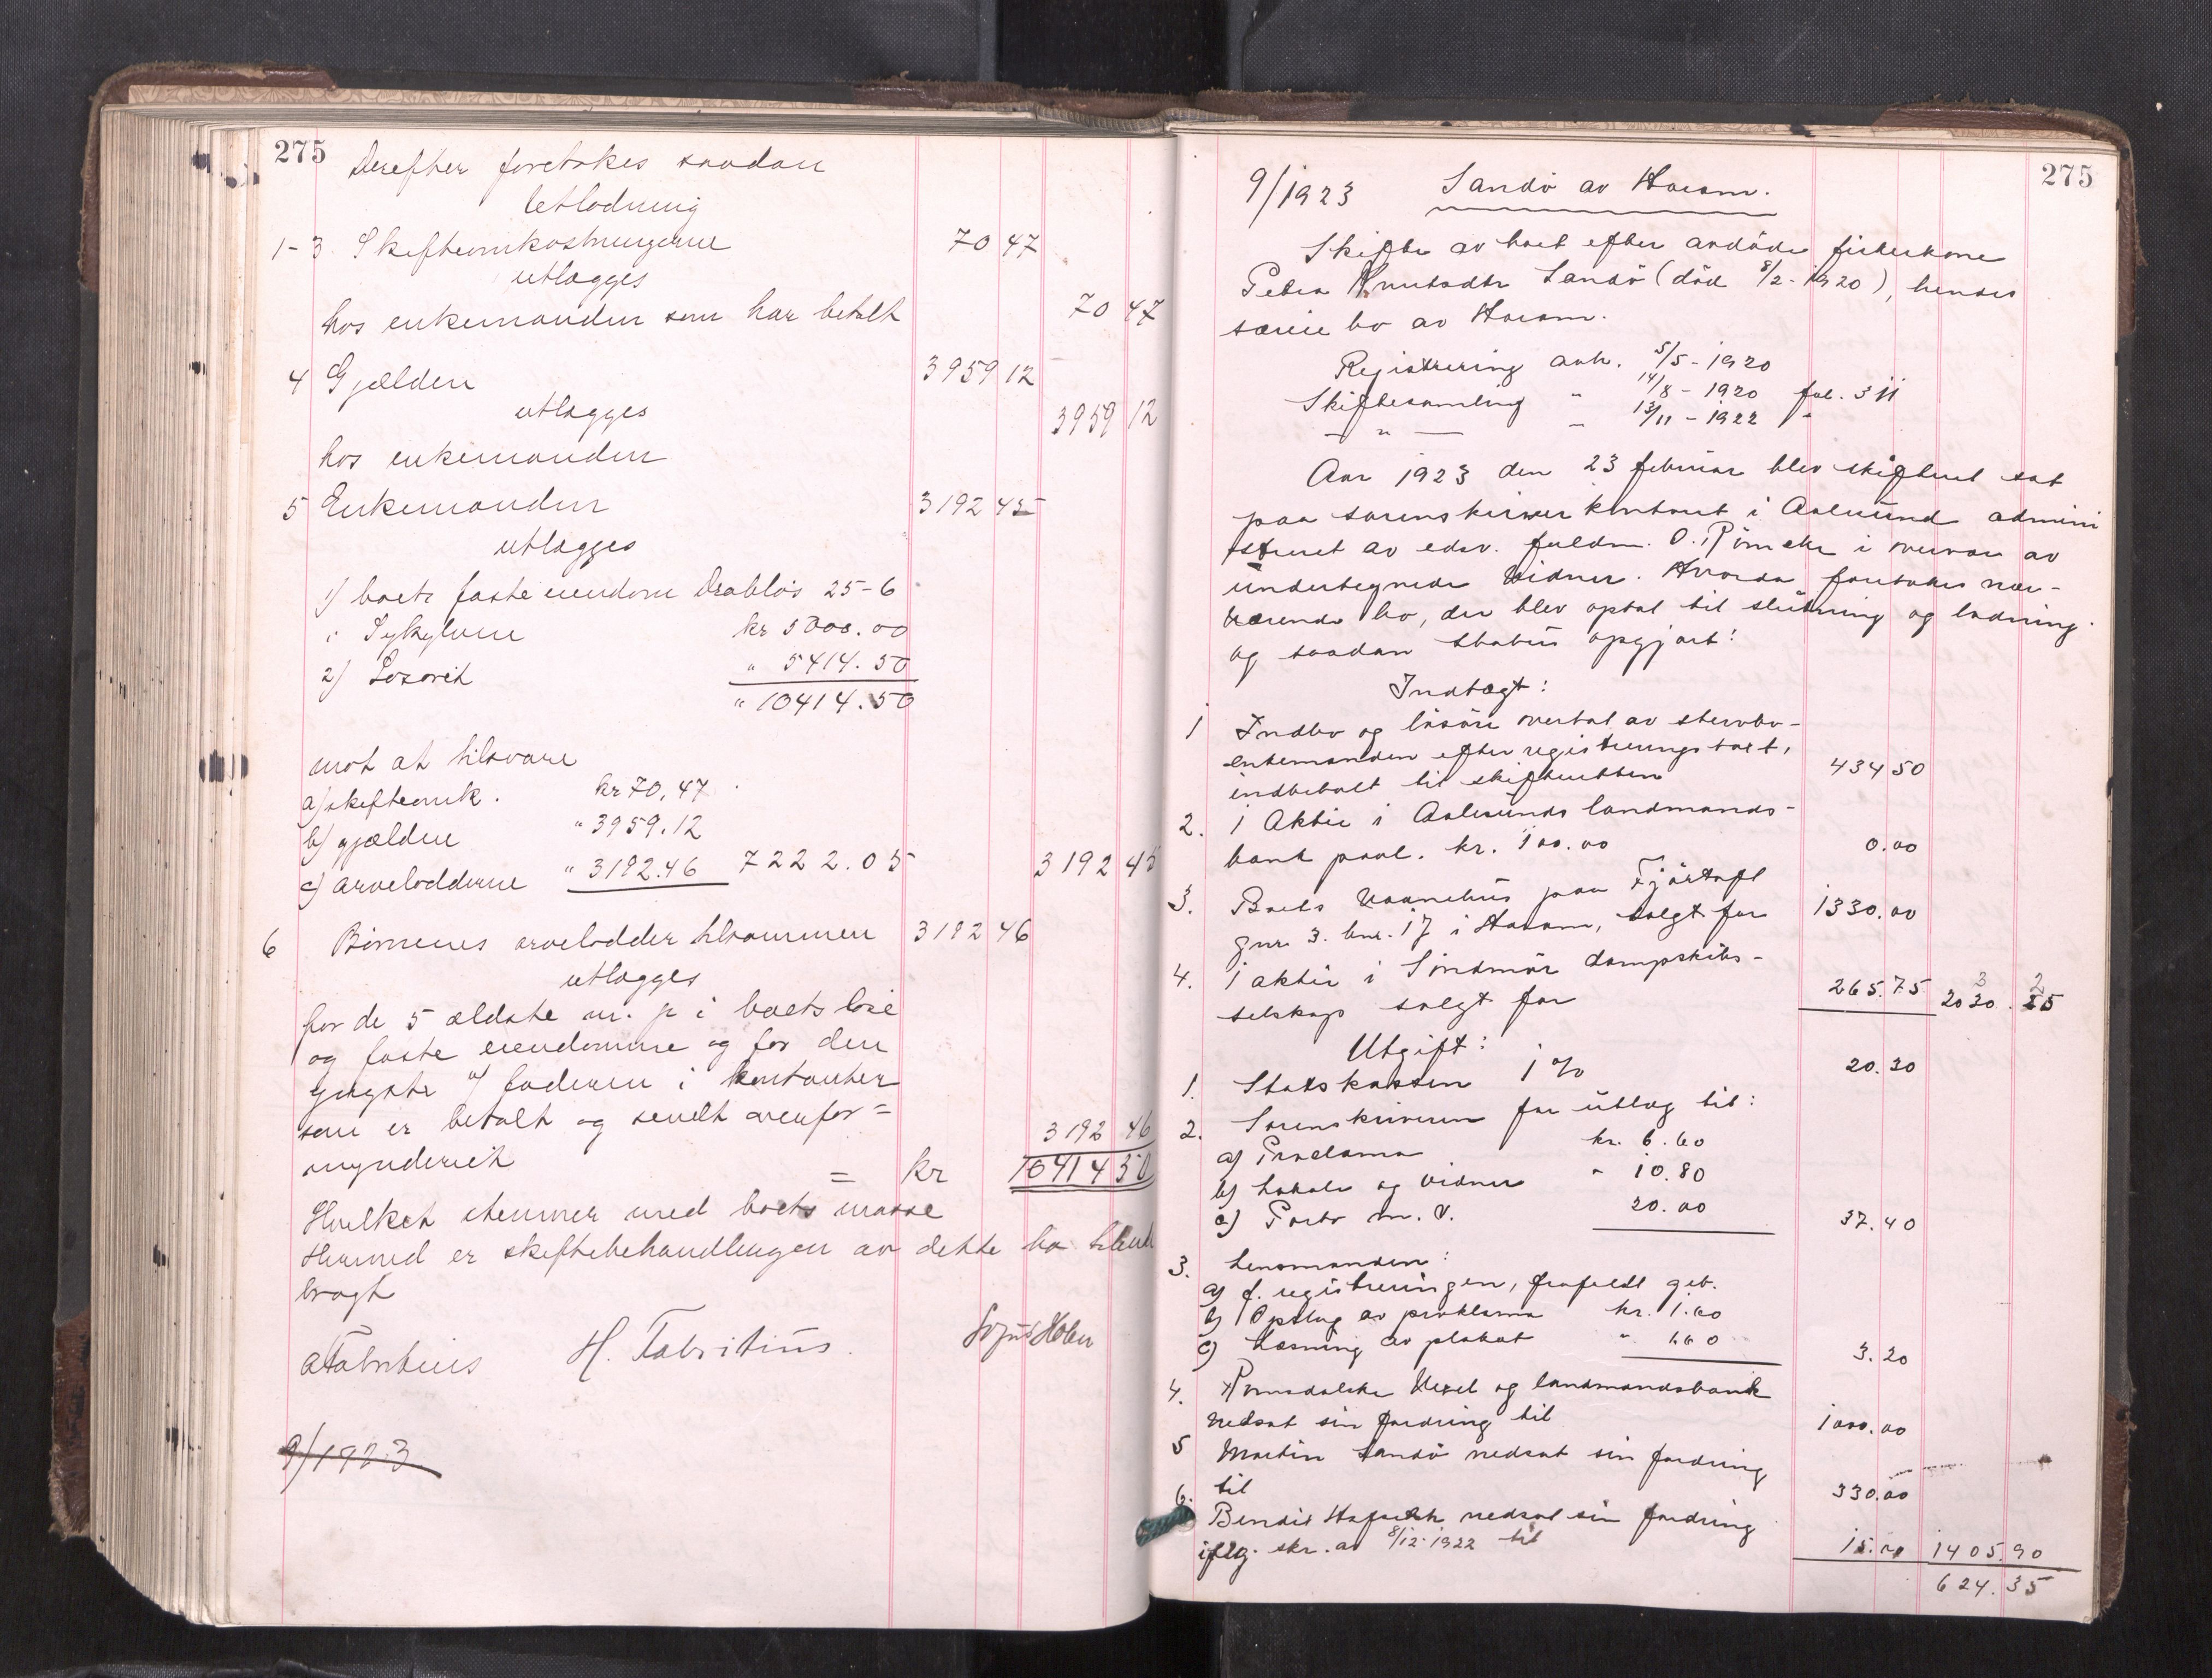 275
Derefter foretokes saadan
Utlodning
1-3 Skifteomkostningerne 70 47
utlægges
hos enkemanden som har betalt 70 47
4 Gjælden 3959 12
utlægges 3959 12
hos enkemanden
5 Enkemanden 3192 45
utlægges
1) boets faste eiendom Drabløs 25-6
i Sykylven kr 5000.00
2) Løsøret " 5414.50
" 10414.50
mot at tilsvare
a) skifteomk. kr 70,47
b) gjælden " 3959.12
c) arvelodderne " 3192.46 7222.05 3192 45
6 Børnenes arvelodder tilsammen 3192 46
utlægges
for de 5 ældste m. p i boets løse
og faste eiendomme og for den
yngste af faderen i kontanter
som er betalt og sendt overfor=
mynderiet 3192 46
= kr 10414 50
Hvilket stemmer med boets masse
Hermed er skiftebehandlingen av dette bo tilende
bragt
AFabritius H. Fabritius.
9/1923
275
9/1923 Sandö av Haram.
Skifte av boet efter avdöde fiskerkone
Petra Knutsdtr Sandö (död 8/2-1920), hendes
særeie bo av Haram.
Registrering avh. 5/5-1920
Skiftesamling " 14/8-1920 fol. 311
— " — " 13/11-1922 "
Aar 1923 den 23 februar blev skifteret sat
paa sorenskriverkontoret i Aalesund admini
streret av edsv. fuldm. O. Rømcke i overvær av
undertegnede vidner. Hvorda foretokes nær-
værende bo, der blev optat til slutning og lodning
og saadan status opgjort:
Indtægt:
1 Indbo og lösöre overtat av stervbo-
enkemanden efter registreringstakst,
indbetalt til skifteretten 434 50
2. 1 Aktie i Aalesunds landmands-
bank paal. kr. 100.00 0.00
3. Boets vaanehus paa Fjörtoft
gnr. 3. bnr. 17 i Haram, solgt for 1330.00
4. 1 aktie i Söndmör dampskibs-
selskap solgt for 265.75 2030.25
Utgift:
1. Statskassen 1 % 20.30
2. Sorenskriveren for utlæg til:
a) Proclama kr. 6.60
b) Lokale og vidner " 10.80
c) Porto m. v. 20.00 37.40
3. Lensmanden:
a) f. registreringen, frafaldt geb.
b) Opslag av proklama kr. 1.60
c) Læsning av plakat " 1.60 3.20
4. Romsdalske Vexel og landmandsbank
nedsat sin fordring til 1000.00
5 Martin Sandö nedsat sin fordring
til 330.00
6. Bendik nedsat sin fordring
iflg. skr. av 8/12-1922 til 15.00 1405.90
624.35